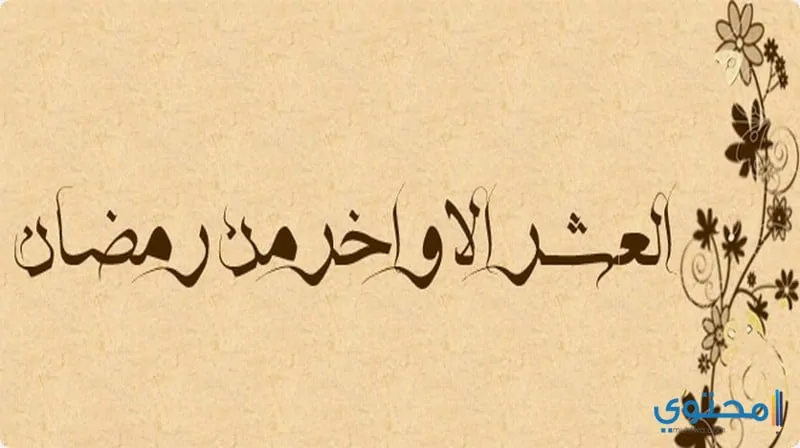 العشر الاواخر من رمضان
محتوى